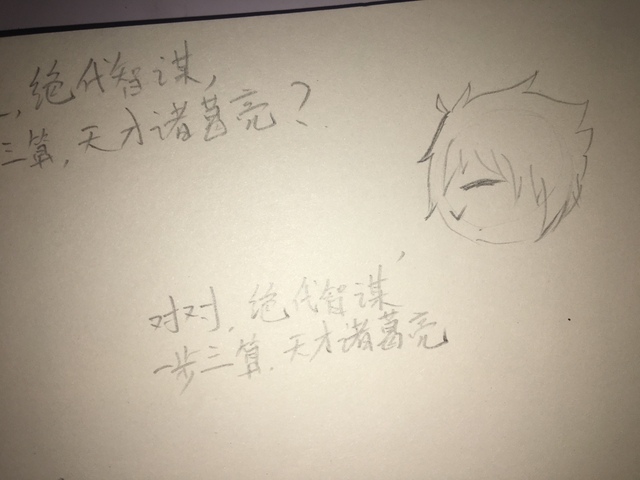 绝代智谋，
三算，天才诸葛亮？
对对，绝代智谋，
一步三算，天才诸葛亮